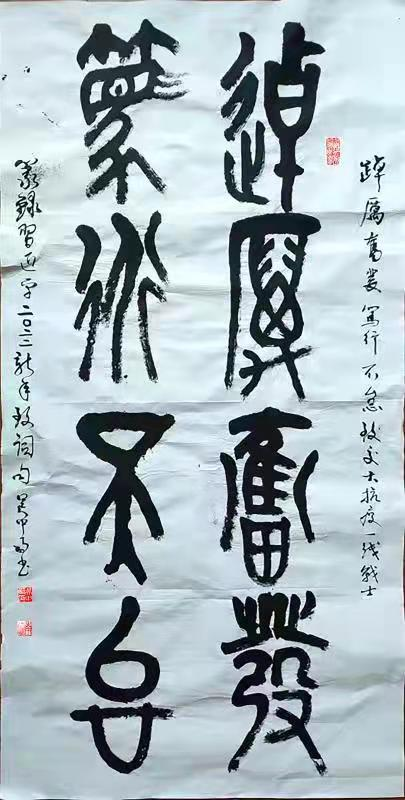 踔厲奮發篤行不怠致交大抗疫一线戰士
踔厲奮發
篤行不怠
篆錄習近平二〇二三新年致詞句